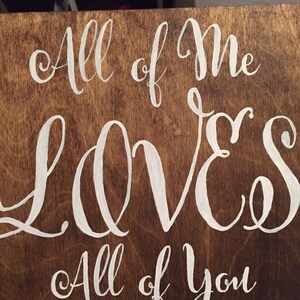 All of Me
LOVES
All of You